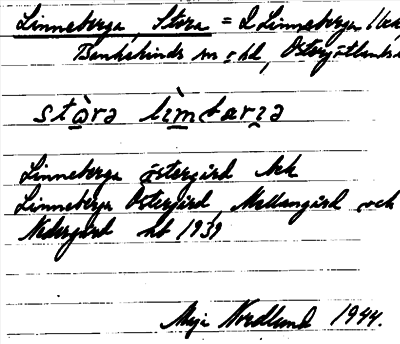 Linneberga, Stora = L Linneberga
Bankekinds sn o hd, Östergötlands
stò̱rə lìm̱bari̱ə
Linneberga östergård
Linneberga Östergård, Mellangård och
Nedergård hb 1939
Maja Nordlund 1944.